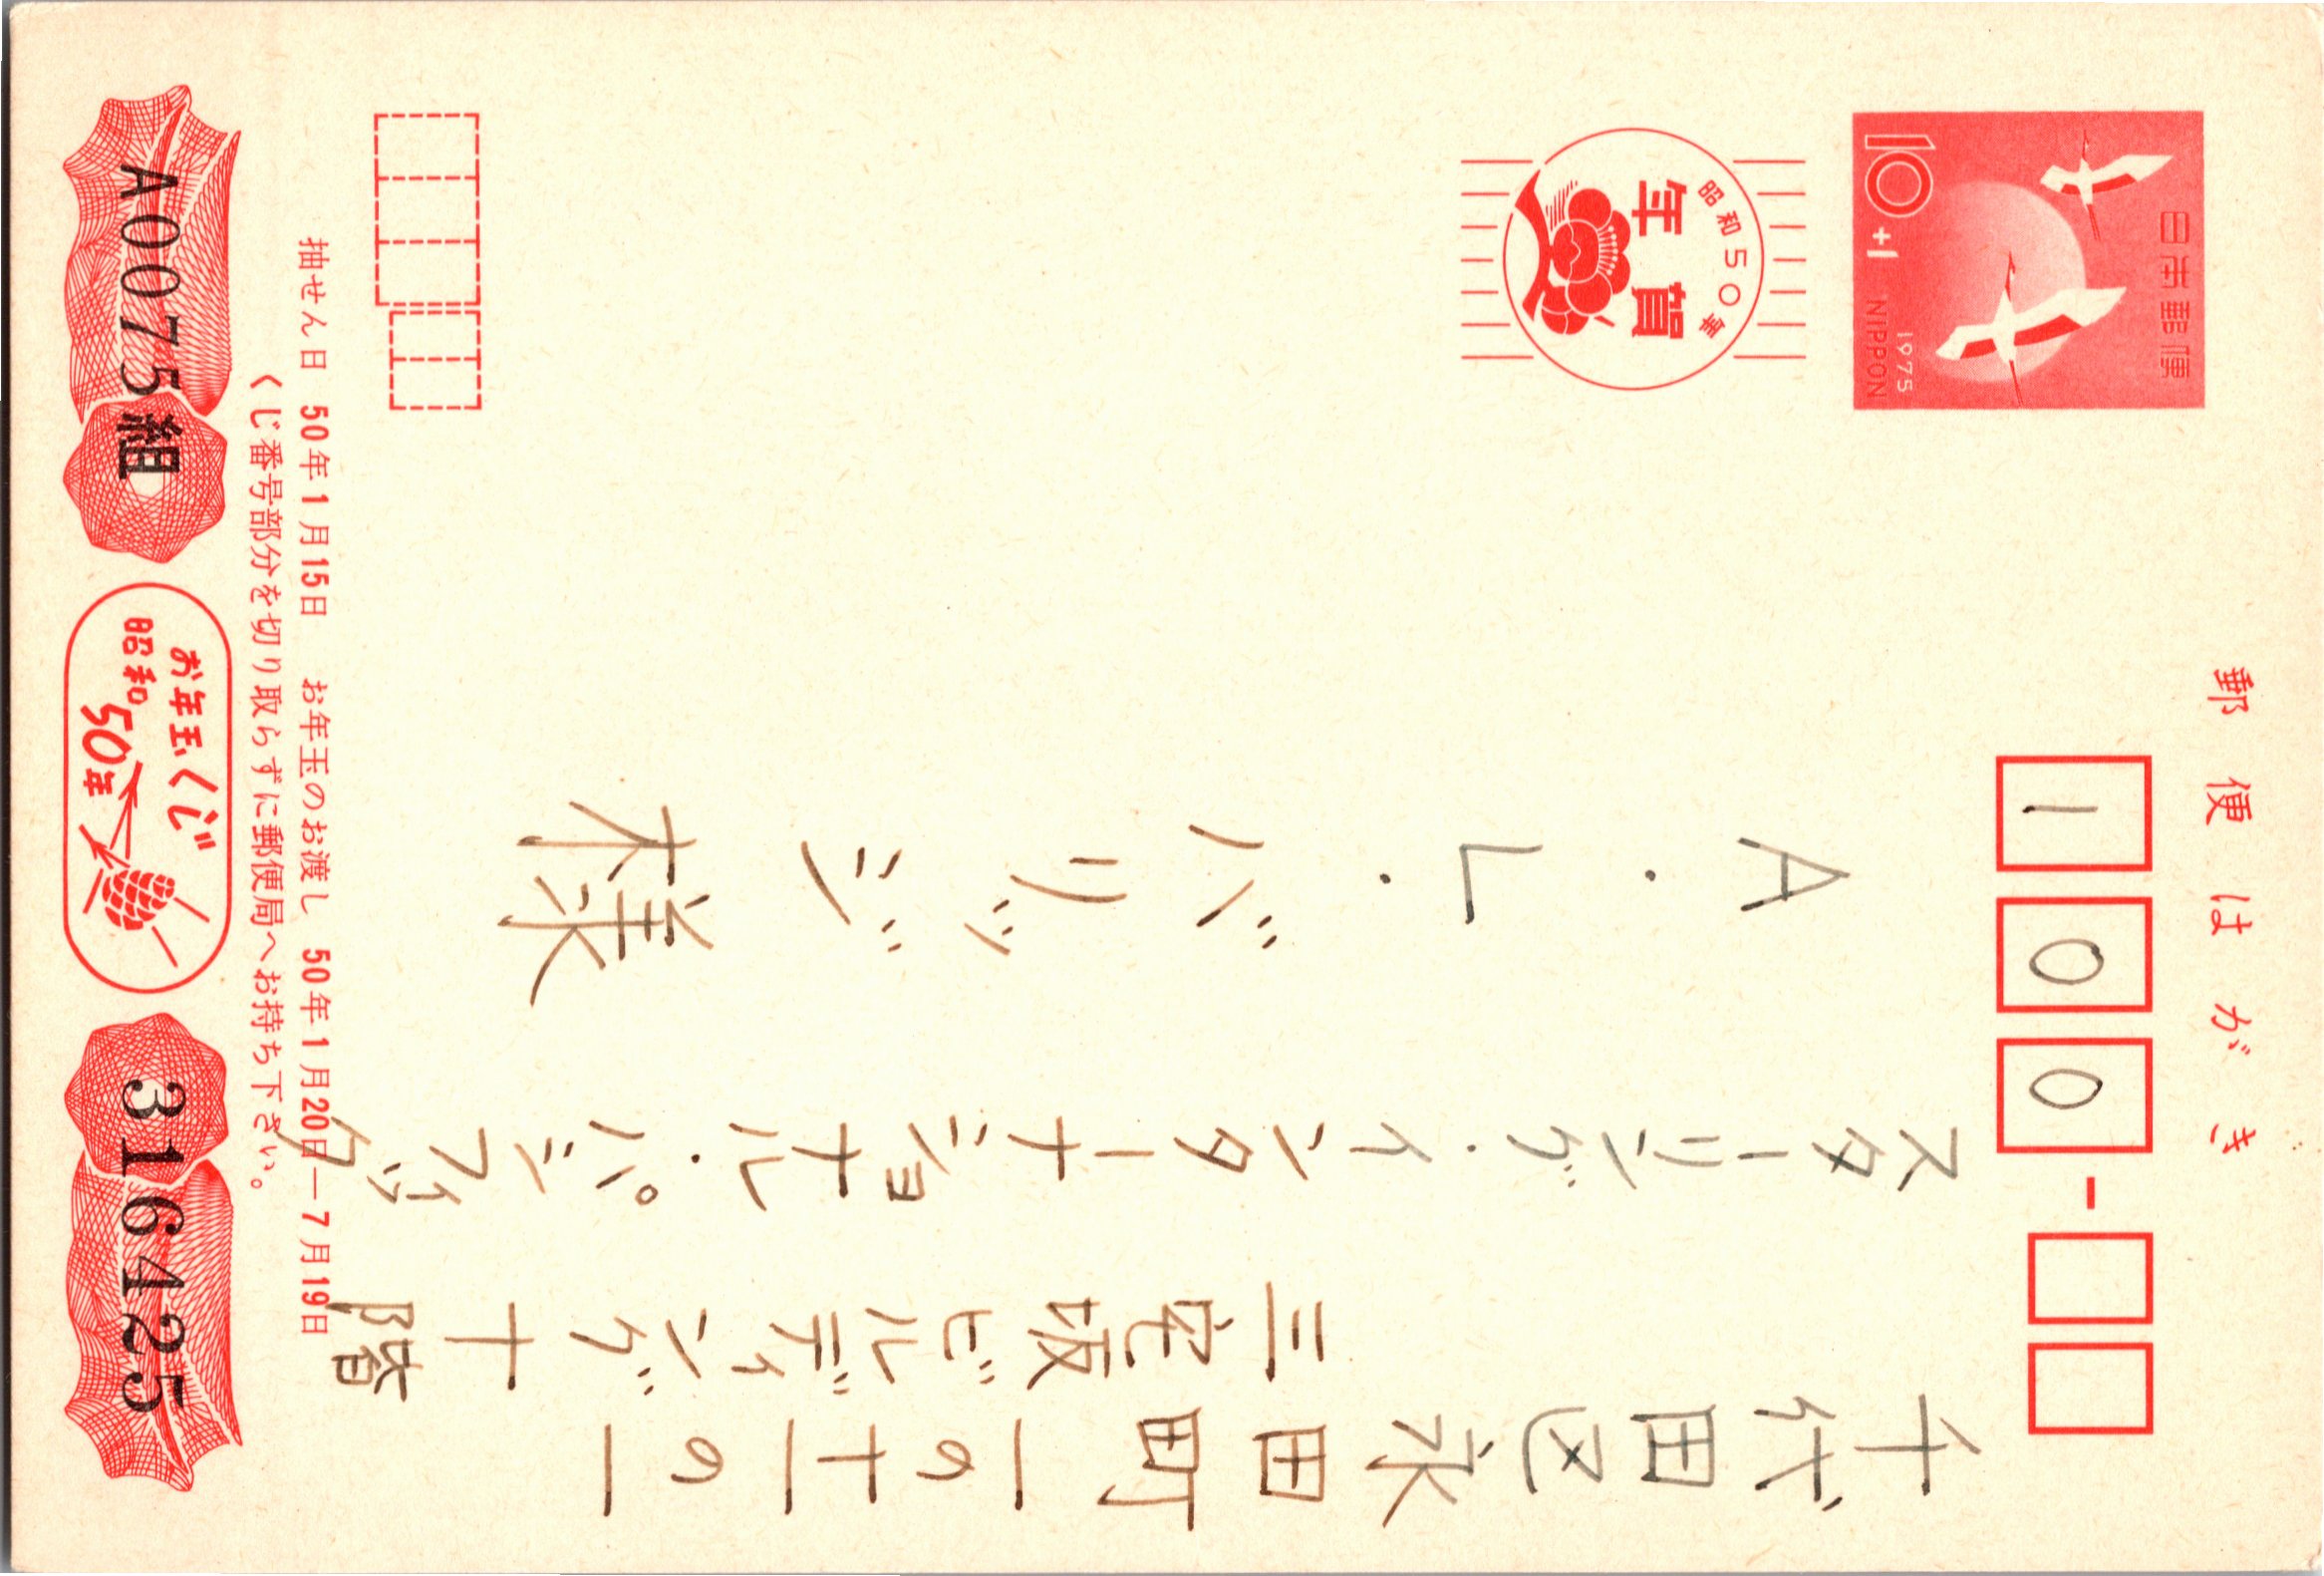 郵便はがき
100
日本郵便
10+1
NIPPON
1975
昭和50年
年賀
千代田区永田町一の十一の一
三宅坂ビルディング十階
スターリング・インターナショナル・パシフィック
A・L・バリッジ様
抽せん日 50年1月15日 お年玉のお渡し 50年1月20日―7月19日
くじ番号部分を切り取らずに郵便局へお持ち下さい。
A0075組
お年玉くじ
昭和
50年
316425